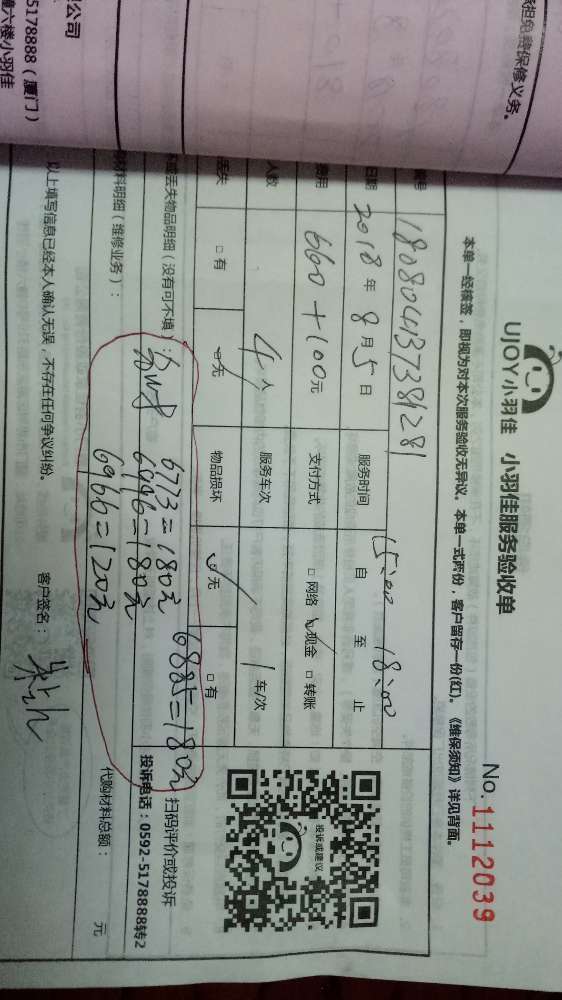 限公司
5178888（厦门）
六楼小羽佳
承担免费保修义务。
UJOY小羽佳 小羽佳服务验收单
No.1112039
本单一经核签，即视为对本次服务验收无异议。本单一式两份，客户留存一份(红)。《维保须知》详见背面。
编号 18080413738128
日期 2018年8月5日 服务时间 15:00 自 至 18:00 止
费用 660+100元 支付方式 □网络 ☑现金 □转账
人数 4人 服务车次 1车/次
丢失 □有 ☑无 物品损坏 ☑无 □有
丢失物品明细（没有可不填）：
6773=180元 6885=180元
6946=180元
6966=120元
材料明细（维修业务）：
代购材料总额： 元
以上填写信息已经本人确认无误，不存在任何争议纠纷。 客户签名：
投诉或建议
扫码评价或投诉
投诉电话：0592-5178888转2